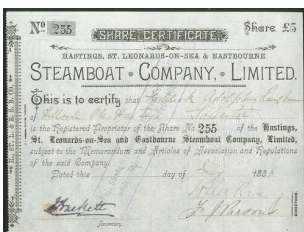 No 255 SHARE CERTIFICATE. Share £5
HASTINGS, ST. LEONARDS-ON-SEA & EASTBOURNE
STEAMBOAT COMPANY, LIMITED.
This is to certify that Frederick Adolphus
of
is the Registered Proprietor of the Share No 255 of the Hastings,
St. Leonards-on-Sea and Eastbourne Steamboat Company, Limited,
subject to the Memorandum and Articles of Association and Regulations
of the said Company.
Dated this day of July 188
J. Parsons
Secretary.